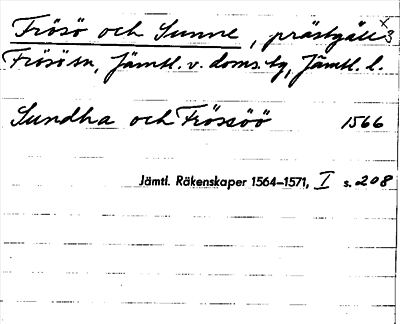 Frösö och Sunne, prästgäll x3
Frösö sn, Jämtl. v. doms. tg, Jämtl. l.
Sundha och Frössöö 1566
Jämtl. Räkenskaper 1564–1571, I s. 208